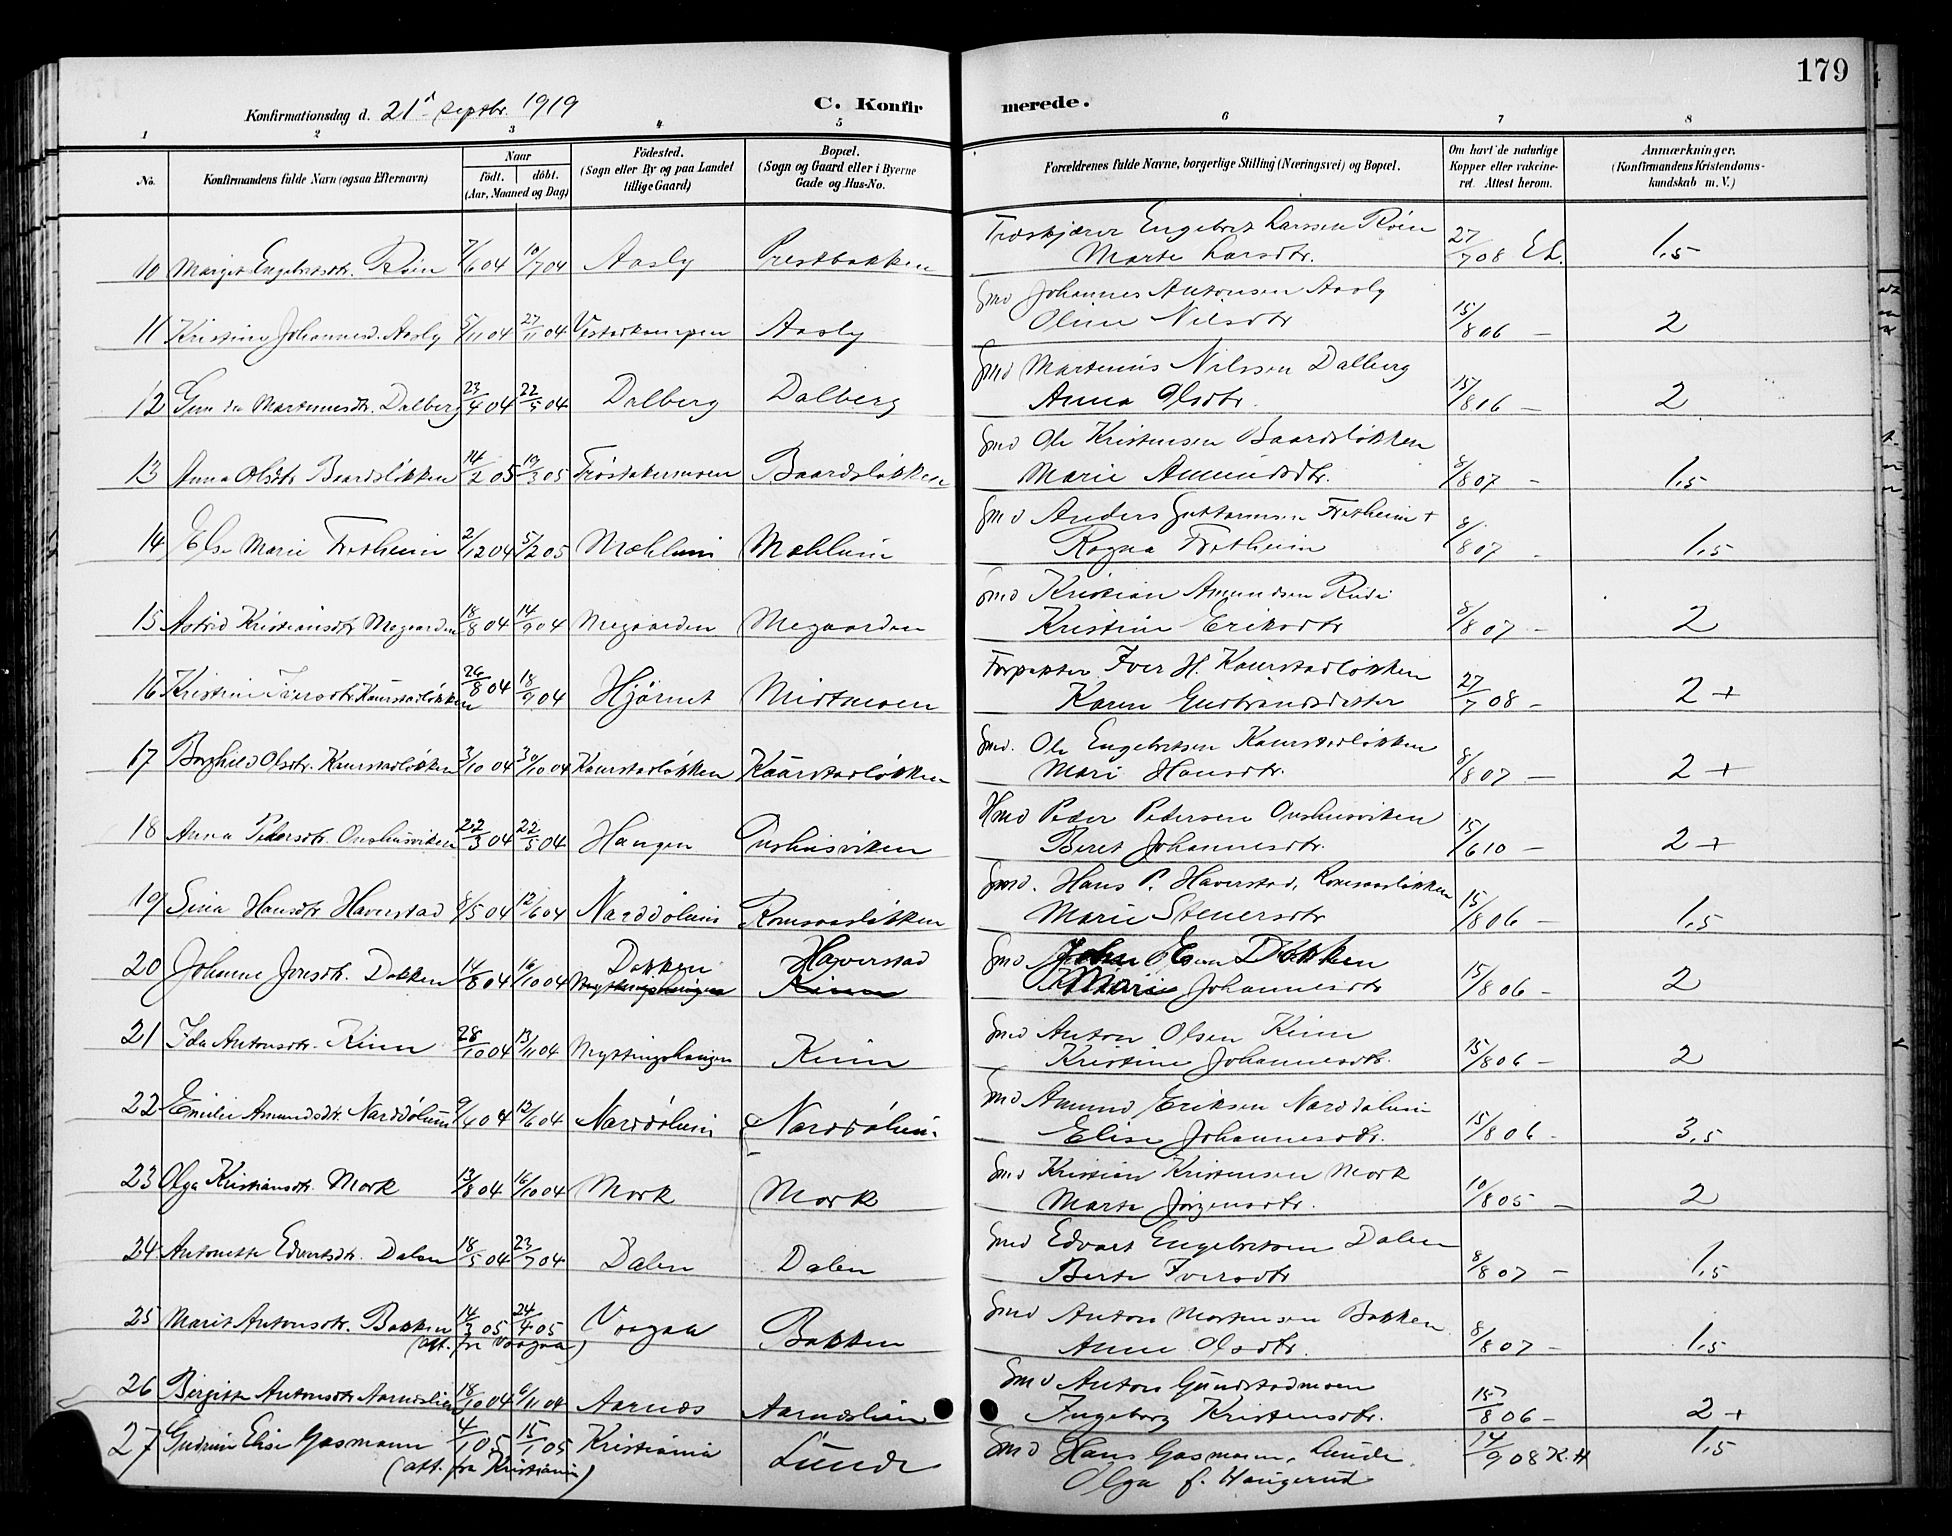 179
Konfirmationsdag d. 21d septbr. 1919 C. Konfirmerede.
1 2 3 4 5 6 7 8
No. Konfirmandens fulde Navn (ogsaa Efternavn) Naar födt. döbt. (Aar, Maaned og Dag) Födested. (Sogn eller By og paa Landet tillige Gaard) Bopæl. (Sogn og Gaard eller i Byerne Gade og Hus-No. Forældrenes fulde Navne, borgerlige Stilling (Næringsvei) og Bopæl. Om havt de naturlige Kopper eller vakcineret. Attest herom. Anmærkninger. (Konfirmandens Kristendomskundskab m. V.)
Træskjærer Engebret Larssen Röen
10 Margit Engebretsdtr. Röen 7/6 04 10/7 04 Aasly Prestbakken Marte Larsdtr. 27/7 08 EL. 1,5
Gmd Johannes Antonsen Aasly
11 Kristine Johannesd. Aasly 5/11 04 27/11 04 Vestadkampen Aasly Oline Nilsdtr 15/8 06 — 2
Gmd Martinius Nilssen Dalberg
12 Gunda Martinusdtr. Dalberg 23/4 04 22/5 04 Dalberg Dalberg Anna Olsdtr. 15/8 06 — 2
Gmd Ole Kristensen Baardsløkken
13 Anna Olsdtr Baardsløkken 14/2 05 19/3 05 Frøstakermoen Baardsløkken Marie Amundsdtr. 8/8 07 - 1,5
Gmd Anders Guttormsen Fretheim +
14 Else Marie Fretheim 2/12 04 5/2 05 Mæhlum Mæhlum Ragna Fretheim 8/8 07 - 1,5
Gmd Kristian Amundsen Rudi
15 Astrid Kristiansdtr Megaarden 18/8 04 14/9 04 Megaarden Megaarden Kristine Eriksdtr 8/8 07 - 2
Forpakter Iver H. Kaurstadløkken
16 Kristine Iversdtr. Kaurstadløkken 26/8 04 18/9 04 Hjörnet Midtmoen Karen Gudbrandsdatter 27/7 08 - 2 +
Gmd. Ole Engebretsen Kaurstadløkken
17 Borghild Olsdtr. Kaurstadløkken 3/10 04 30/10 04 Kaurstadløkken Kaurstadløkken Mari Hansdtr. 8/8 07 — 2 +
Hmd Peder Pedersen Onshusviken
18 Anna Pedersdtr. Onshusviken 22/3 04 22/5 04 Haugen Onshusviken Beret Johannesdtr. 15/6 10 - 2 +
Gmd. Hans P. Haverstad, Romsaasløkken
19 Sina Hansdtr Haverstad 8/5 04 12/6 04 Narddölum Romsaasløkken Marie Steuersdtr 15/8 06 — 1,5
Dokken Haverstad Gmd John Olsen Dokken
20 Johanne Jonsdtr. Dokken 14/8 04 16/10 04 Myttingshaugen Kinn Mari Johannesdtr 15/8 06 - 2
Gmd Anton Olsen Kinn
21 Ida Antonsdtr. Kinn 28/10 04 13/11 04 Myttingshaugen Kinn Kristine Johannesdtr. 15/8 06 — 2
Gmd Amund Eriksen Narddölum
22 Emilie Amundsdtr. Narddölum 9/4 04 12/6 04 Narddölum Narddölum. Elise Johannesdtr. 15/8 06 - 3,5
Gmd Kristian Kristensen Mork
23 Olga Kristiansdtr. Mork 13/8 04 16/10 04 Mork Mork Marte Jörgensdtr. 10/8 05 — 2
Gmd Edvart Engebretsen Dalen
24 Antonette Edvartsdtr. Dalen 18/5 04 23/7 04 Dalen Dalen Berte Iversdtr 8/8 07 — 1,5
Gmd Anton Mortensen Bakken
25 Marit Antonsdtr. Bakken 14/3 05 24/4 05 Vaagaa Bakken Anne Olsdtr. 8/8 07 — 1,5
(att. fra Vaagaa)
Gmd Anton Gundstadmoen
26 Birgitte Antonsdtr Aarnæslien 18/10 04 6/11 04 Aarnæs Aarnæslien Ingeborg Kristensdtr. 15/8 06 — 2 +
27 Gudrun Elise Gasmann 4/1 05 15/1 05 Kristiania Lunde Gmd Hans Gasmann, Lunde. 14/9 08 K.H 1,5
(att. fra Kristiania) Olga f. Haugerud